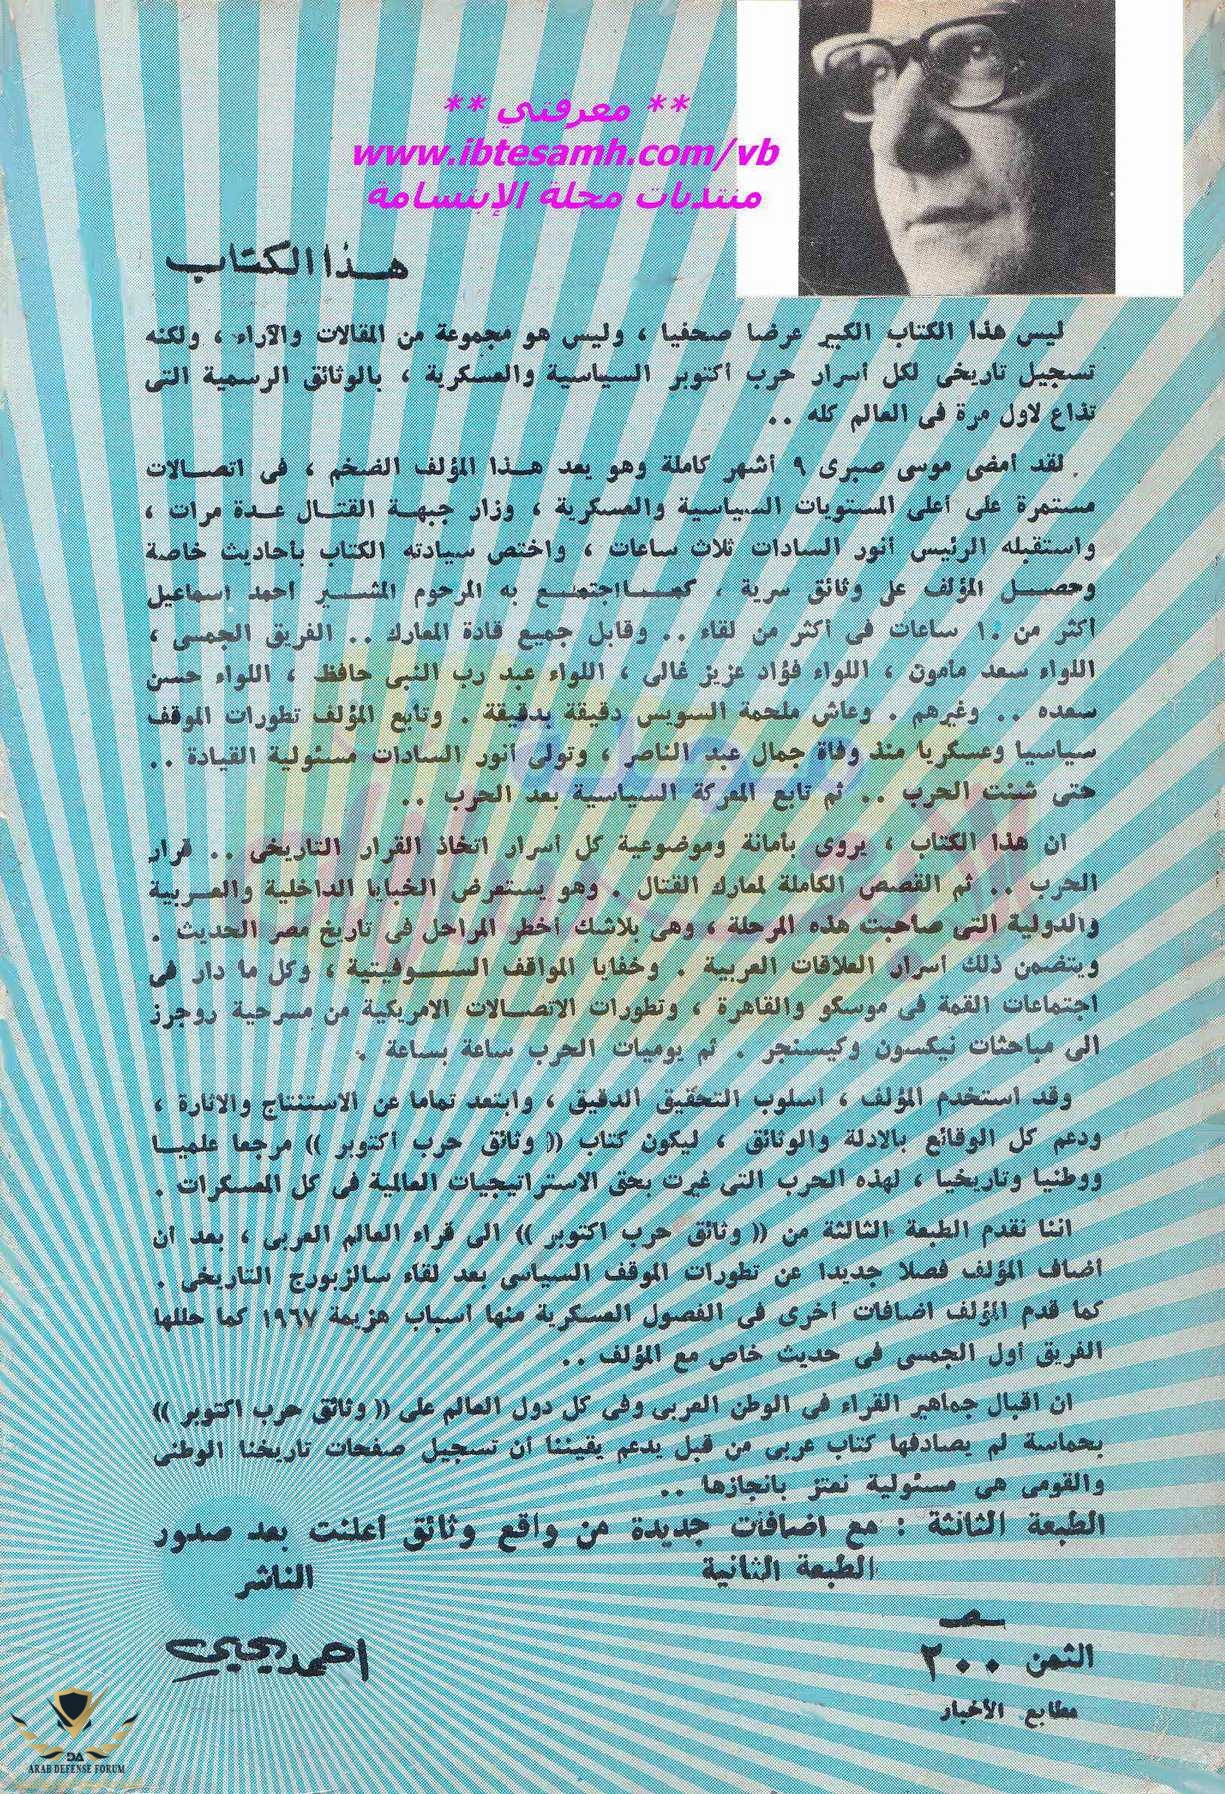 ** معرفتي **
www.ibtesamh.com/vb
منتديات مجلة الإبتسامة
هذا الكتاب
ليس هذا الكتاب الكبير عرضا صحفيا ، وليس هو مجموعة من المقالات والآراء ، ولكنه
تسجيل تاريخى لكل أسرار حرب أكتوبر السياسية والعسكرية ، بالوثائق الرسمية التى
تذاع لاول مرة فى العالم كله ..
لقد أمضى موسى صبرى ٩ أشهر كاملة وهو يعد هذا المؤلف الضخم ، فى اتصالات
مستمرة على أعلى المستويات السياسية والعسكرية ، وزار جبهة القتال عدة مرات ،
واستقبله الرئيس أنور السادات ثلاث ساعات ، واختص سيادته الكتاب بأحاديث خاصة
وحصل المؤلف على وثائق سرية ، كما اجتمع به المرحوم المشير احمد اسماعيل
اكثر من ١٠ ساعات فى أكثر من لقاء .. وقابل جميع قادة المعارك .. الفريق الجمسى ،
اللواء سعد مامون ، اللواء فؤاد عزيز غالى ، اللواء عبد رب النبى حافظ ، اللواء حسن
سعده .. وغيرهم . وعاش ملحمة السويس دقيقة بدقيقة . وتابع المؤلف تطورات الموقف
سياسيا وعسكريا منذ وفاة جمال عبد الناصر ، وتولى أنور السادات مسئولية القيادة ..
حتى شنت الحرب .. ثم تابع المعركة السياسية بعد الحرب ..
ان هذا الكتاب ، يروى بأمانة وموضوعية كل أسرار اتخاذ القرار التاريخى .. قرار
الحرب .. ثم القصص الكاملة لمعارك القتال . وهو يستعرض الخبايا الداخلية والعربية
والدولية التى صاحبت هذه المرحلة ، وهى بلاشك أخطر المراحل فى تاريخ مصر الحديث .
ويتضمن ذلك أسرار العلاقات العربية . وخفايا المواقف السوفيتية ، وكل ما دار فى
اجتماعات القمة فى موسكو والقاهرة ، وتطورات الاتصالات الامريكية من مسرحية روجرز
الى مباحثات نيكسون وكيسنجر . ثم يوميات الحرب ساعة بساعة .
وقد استخدم المؤلف ، اسلوب التحقيق الدقيق ، وابتعد تماما عن الاستنتاج والاثارة ،
ودعم كل الوقائع بالادلة والوثائق ، ليكون كتاب (( وثائق حرب اكتوبر )) مرجعا علميا
ووطنيا وتاريخيا ، لهذه الحرب التى غيرت بحق الاستراتيجيات العالمية فى كل المعسكرات .
اننا نقدم الطبعة الثالثة من (( وثائق حرب اكتوبر )) الى قراء العالم العربى ، بعد ان
اضاف المؤلف فصلا جديدا عن تطورات الموقف السياسى بعد لقاء سالزبورج التاريخى .
كما قدم المؤلف اضافات أخرى فى الفصول العسكرية منها أسباب هزيمة ١٩٦٧ كما حللها
الفريق أول الجمسى فى حديث خاص مع المؤلف ..
ان اقبال جماهير القراء فى الوطن العربى وفى كل دول العالم على (( وثائق حرب اكتوبر ))
بحماسة لم يصادفها كتاب عربى من قبل يدعم يقيننا أن تسجيل صفحات تاريخنا الوطنى
والقومى هى مسئولية نعتز بانجازها ..
الطبعة الثالثة : مع اضافات جديدة من واقع وثائق اعلنت بعد صدور
الطبعة الثانية
الناشر
احمد يحيى
الثمن ٢٠٠
مطابع الأخبار
DA
ARAB DEFENSE FORUM